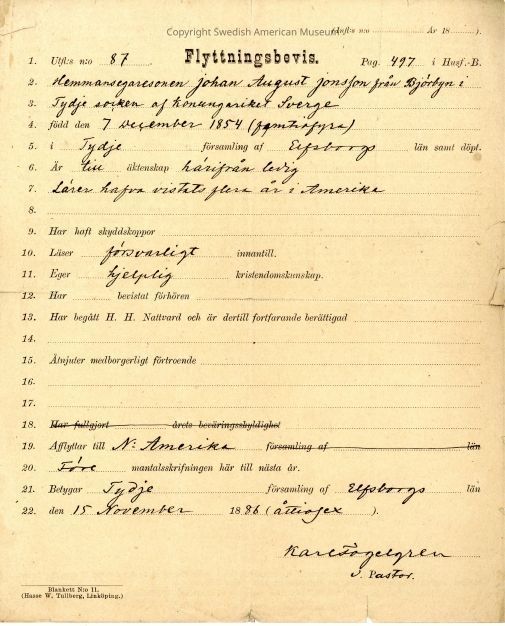 Copyright Swedish American Museum
(Infl:s n:o År 18 ).
Flyttningsbevis.
1. Utfl:s n:o 87. Pag. 497 i Husf.-B.
2. Hemmansegaresonen johan August jonsson från Björbyn i
3. Tydje socken af konungariket Sverge
4. född den 7 December 1854 (femtiofyra)
5. i Tydje församling af Elfsborgs län samt döpt.
6. Är till äktenskap härifrån ledig
7. Lärer hafva vistats flera år i Amerika
8.
9. Har haft skyddskoppor
10. Läser försvarligt innantill.
11. Eger hjelplig kristendomskunskap.
12. Har bevistat förhören
13. Har begått H. H. Nattvard och är dertill fortfarande berättigad
14.
15. Åtnjuter medborgerligt förtroende
16.
17.
18. Har fullgjort årets beväringsskyldighet
19. Afflyttar till N: Amerika församling af län
20. Före mantalsskrifningen här till nästa år.
21. Betygar Tydje församling af Elfsborgs län
22. den 15 November 1886 (åttiosex ).
Karl Fogelgren
Pastor.
Blankett N:o 11.
(Hasse W. Tullberg, Linköping.)